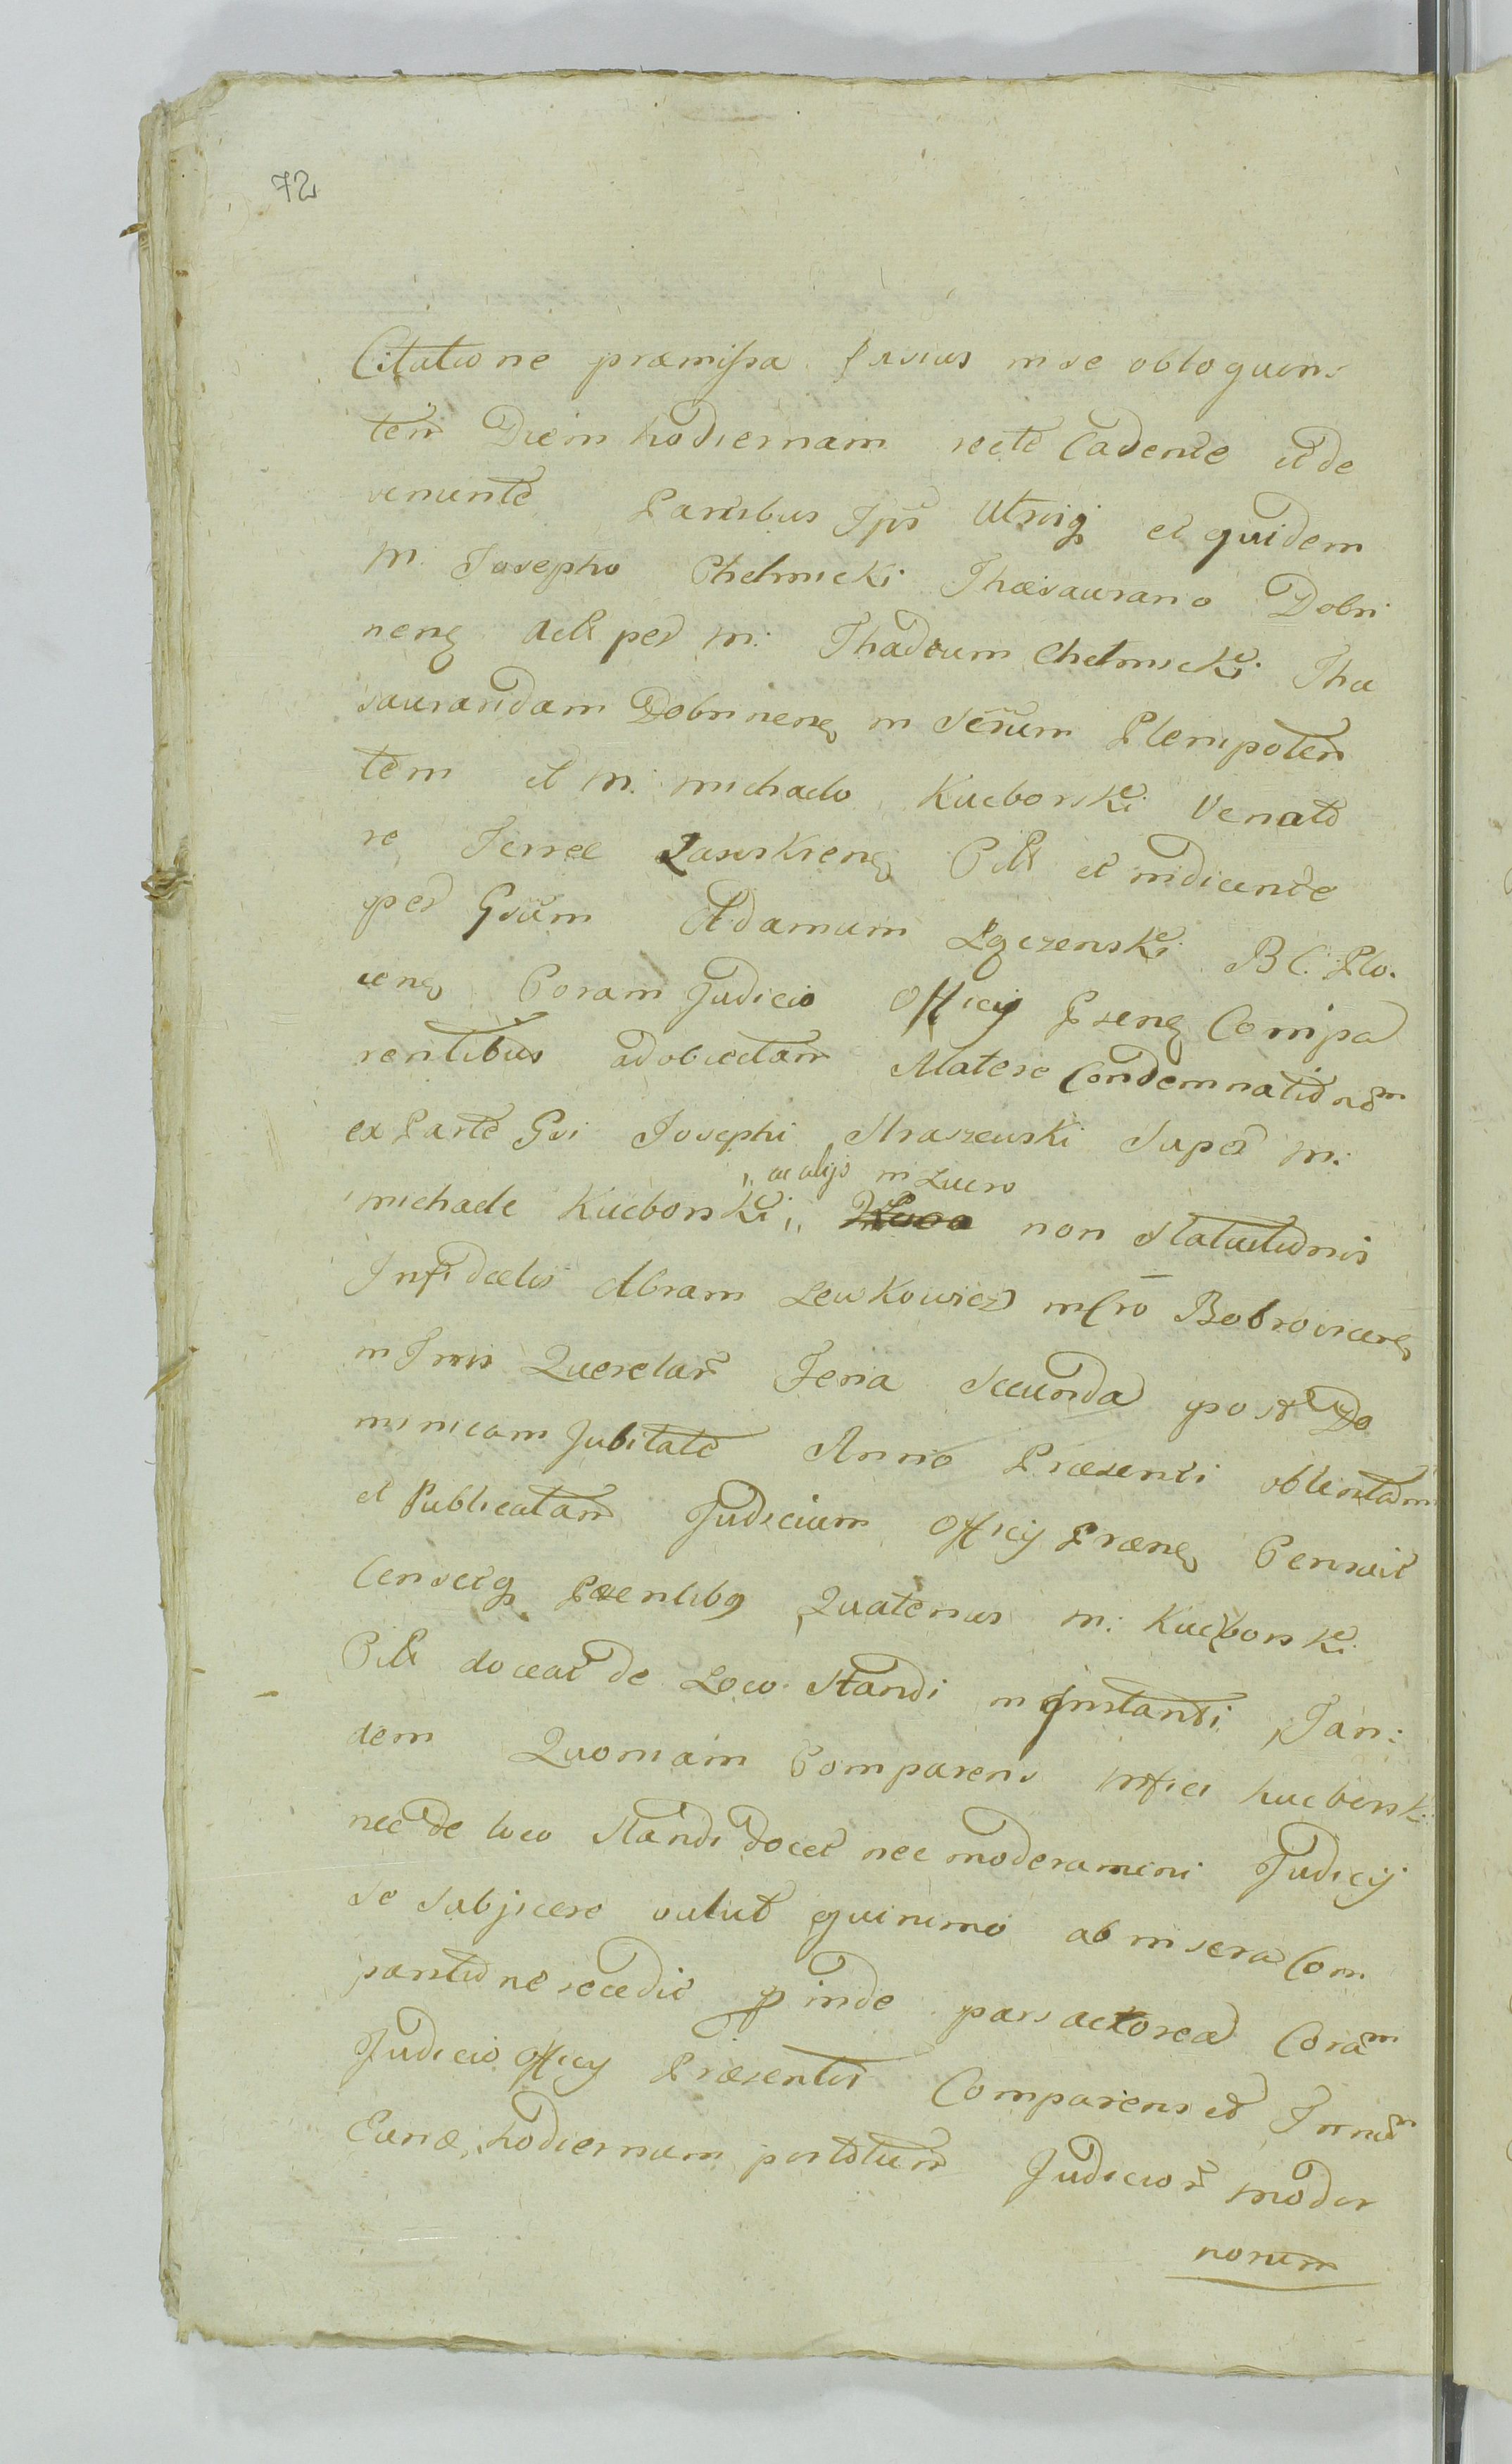 72
Citatione præmissa fusius in se obloquen
tem Diem hodiernam recte Cadente et de
veniente Partibus Ipis Utrisq et quidem
M. Josepho Chelmicki Thæsaurario Dobri
neng Act per M: Thadeum Chelmicki Thæ
saurandam Dobrineng in Serum Plenipoten
tem et M. Michaelo Kucborski Venato
re Terræ Zawskreng Citt et indicente
per Gsum Adamum Łączenski B C. Plo.
ceng Coram Judicio Officij Pseng Compa
rentibus ad obiectam Matere Condemnationem
ex Parte Gsi Josephi Straszewski Super M:
,, ac alijs in Lucro
Michaele Kucborski ,, non Statuitionis
Infidelis Abram Lewkowicz in Cro Bobroviceng
in Trmis Querelar Feria Secunda post Do
minicam Jubilate Anno Præsenti obtentam
et Publicatam Judicium Officij Præng Censuit
Censetq Psentibq Quatenus M: Kucborski
Citt doceat de Loco Standi in Instanti, Tan:
dem Quoniam Comparens Mfici Kucborski
nec de loco Standi docet nec moderamini Judicij
se Subjicere valuit quinimo ab inisera Com
paritione recedit p inde pars actorea Coram
Judicio Officij Præsentis Comparens et Trnum
Eund hodiernum portotum Judicior moder
norum